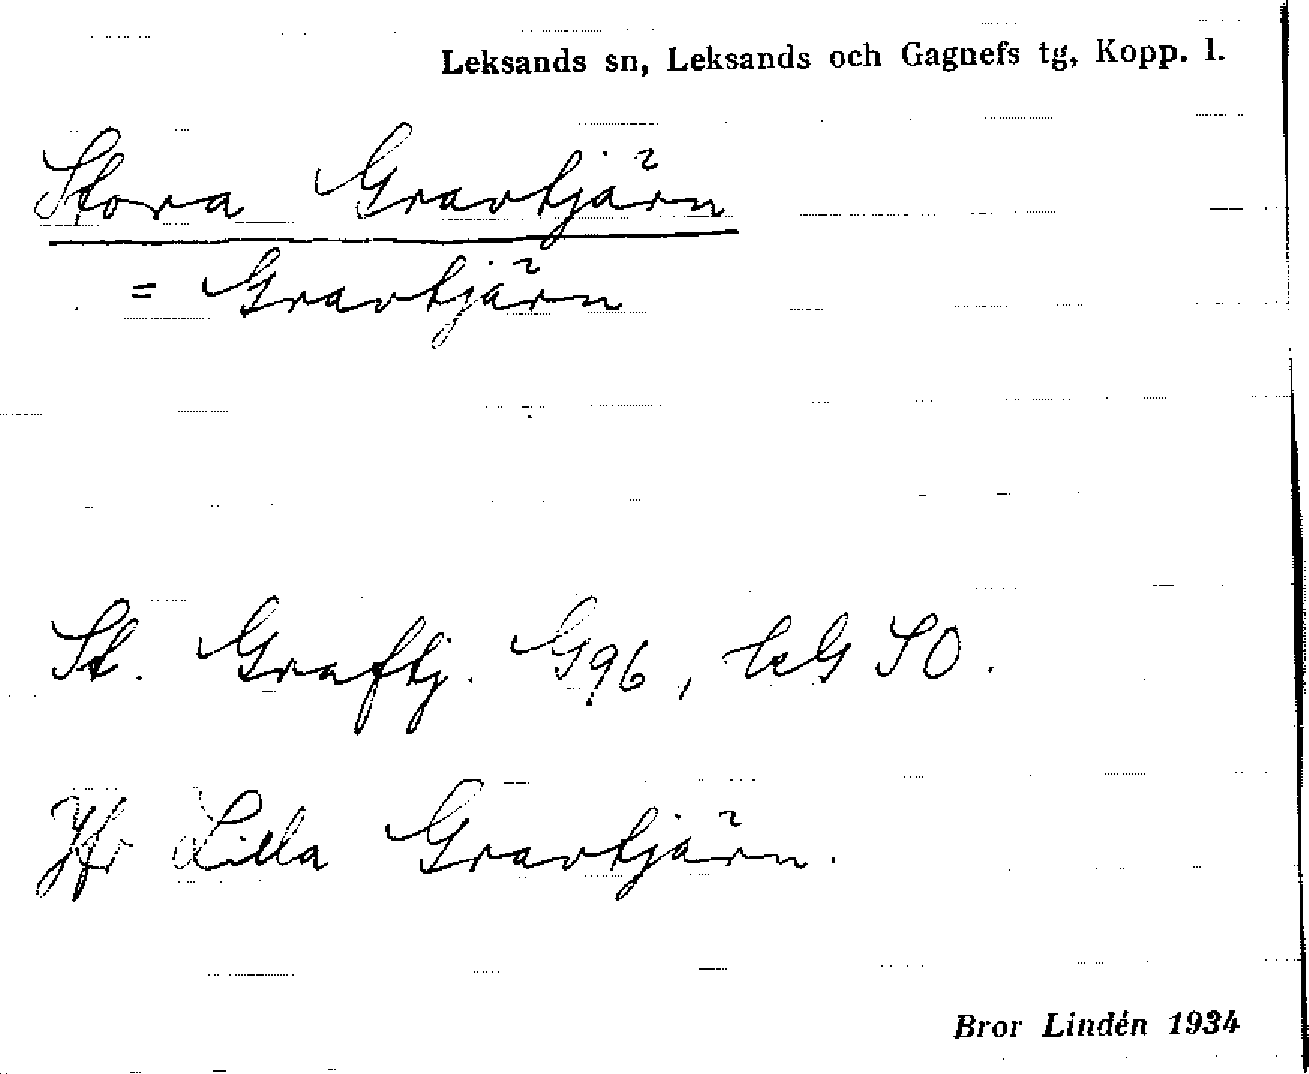 Leksands sn, Leksands och Gagnefs tg, Kopp. l.
Stora Gravtjärn
= Gravtjärn
St. Graftj. G96, LeG SO.
Jfr Lilla Gravtjärn.
Bror Lindén 1934